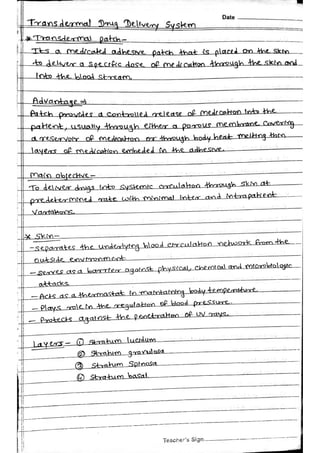 Date
Transdermal Drug Delivery System
* Transdermal patch-
Its a medicated adhesive patch that is placed on the skin
to deliver a specific dose of medication through the skin and
into the blood stream.
Advantage ⇒
Patch provides a controlled release of medication into the
patient, usually through either a porous membrane covering
a reservoir of medication or through body heat melting thin
layers of medication embeded in the adhesive.
Main objective-
To deliver drugs into systemic circulation through skin at
predetermined rate with minimal inter and intrapatient
Variations.
* Skin-
- separates the underlying blood circulation network from the
outside environment
- serves as a barrier against physical, chemical and microbiologic
attacks
- Acts as a thermostat in maintaining body temperature
- Plays role in the regulation of blood pressure.
- Protects against the penetration of UV rays.
Layers- ① Stratum lucidum
② Stratum granulosa
③ Stratum Spinosa
Stratum basal
Teacher's Sign